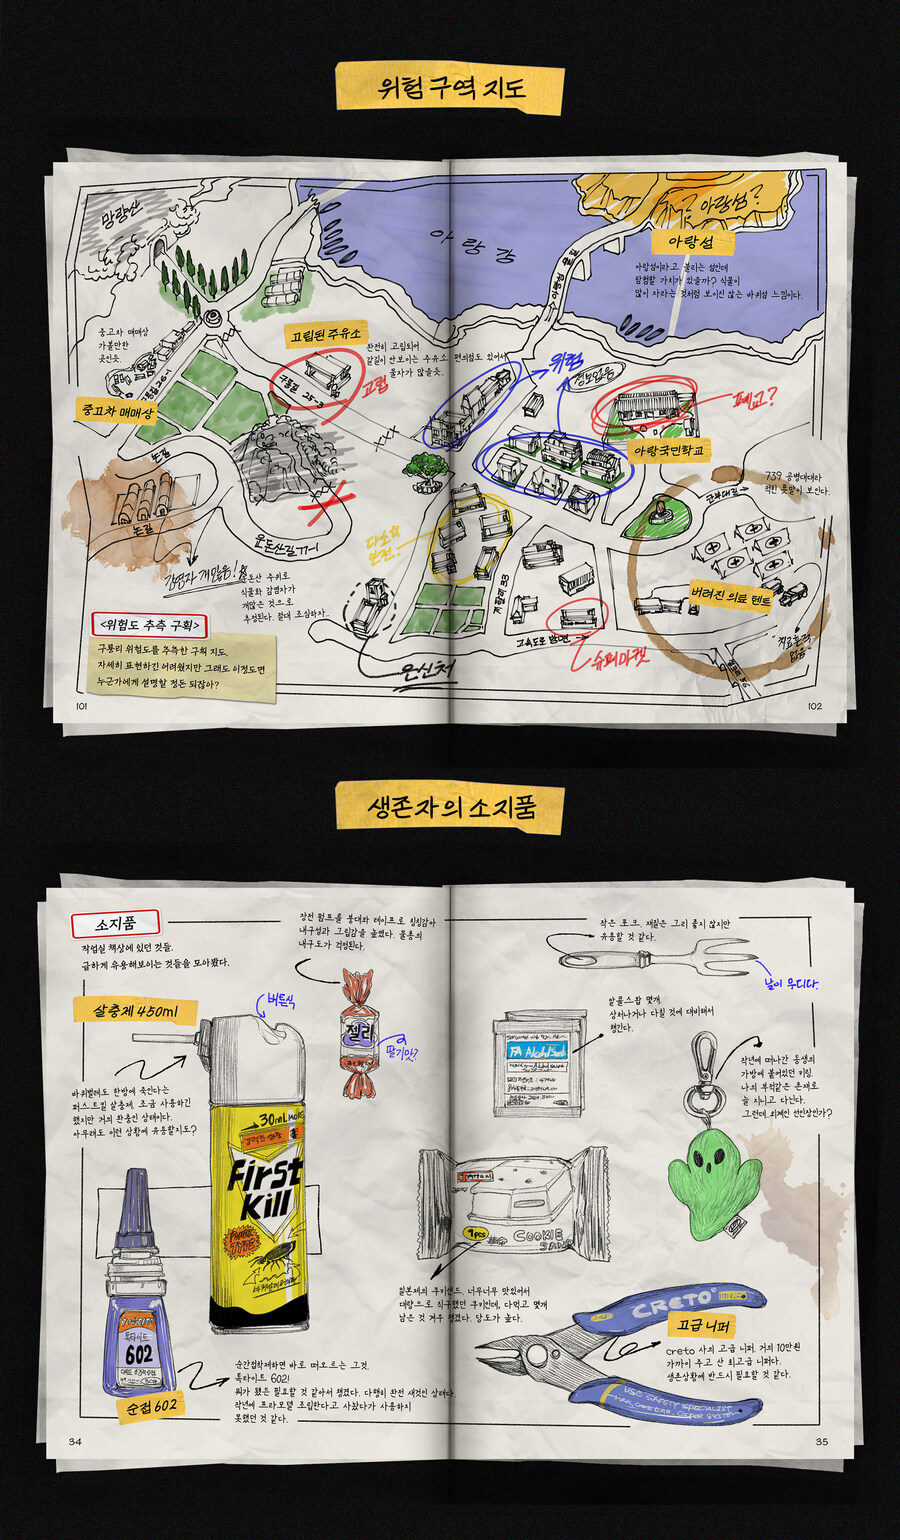 위험 구역 지도
망량산
아랑강
아랑섬?
아랑섬
아랑섬이라고 불리는 섬인데
탐험할 가치가 있을까? 식물이
많이 자라는 것처럼 보이진 않는 바위섬 느낌이다.
중고차 매매상
가볼만한
곳인듯.
고립된 주유소
완전히 고립되어
갈길이 안보이는 주유소. 편의점도 있어서
물자가 많을듯..
구룡길 25-3
고립
위험
정보없음
폐교?
중고차 매매상
아랑국민학교
논길
논길
739 공병대대라
적힌 푯말이 보인다.
군부대로
운돈산길 77-1
다소
안전!
감염자 개많음!
운돈산 주위로
식물화 감염자가
개많은 것으로
추정된다. 절대 조심하자..
버려진 의료 텐트
치료흔적
없음
<위험도 추측 구획>
구룡리 위험도를 추측한 구획 지도.
자세히 표현하긴 어려웠지만 그래도 이정도면
누군가에게 설명할 정돈 되잖아?
은신처
고속도로 방면
슈퍼마켓
101
102
생존자의 소지품
소지품
작업실 책상에 있던 것들.
급하게 유용해보이는 것들을 모아봤다.
장전 펌프를 붕대와 테이프로 칭칭감아
내구성과 그립감을 높였다. 물총의
내구도가 걱정된다.
작은 포크. 재질은 그리 좋지 않지만
유용할 것 같다.
날이 무디다.
살충제 450ml
버튼식
젤리
딸기맛?
알콜스왑 몇개.
상처나거나 다칠 것에 대비해서
챙긴다.
FA Alcohol Swab
작년에 떠나간 동생의
가방에 붙어있던 키링.
나의 부적같은 존재로
늘 지니고 다닌다.
그런데.. 외계인 선인장인가?
바퀴벌레도 한방에 죽인다는
퍼스트킬 살충제. 조금 사용하긴
했지만 거의 완충인 상태이다.
아무래도 이런 상황에 유용할지도?
30ml MORE
First
Kill
POWER
TYPE
1pcs
COOKIE
SAND
일본제의 쿠키샌드. 너무너무 맛있어서
대량으로 직구했던 쿠키인데, 다먹고 몇개
남은 것 겨우 챙겼다. 당도가 높다.
록타이트
602
순접 602
순간접착제하면 바로 떠오르는 그것.
록타이트 602!
뭐가 됐든 필요할 것 같아서 챙겼다. 다행히 완전 새것인 상태다.
작년에 프라모델 조립한다고 사놨다가 사용하지
못했던 것 같다.
CRETO
고급 니퍼
creto 사의 고급 니퍼. 거의 10만원
가까이 주고 산 최고급 니퍼다.
생존상황에 반드시 필요할 것 같다.
USE SAFETY SPECIALIST
34
35